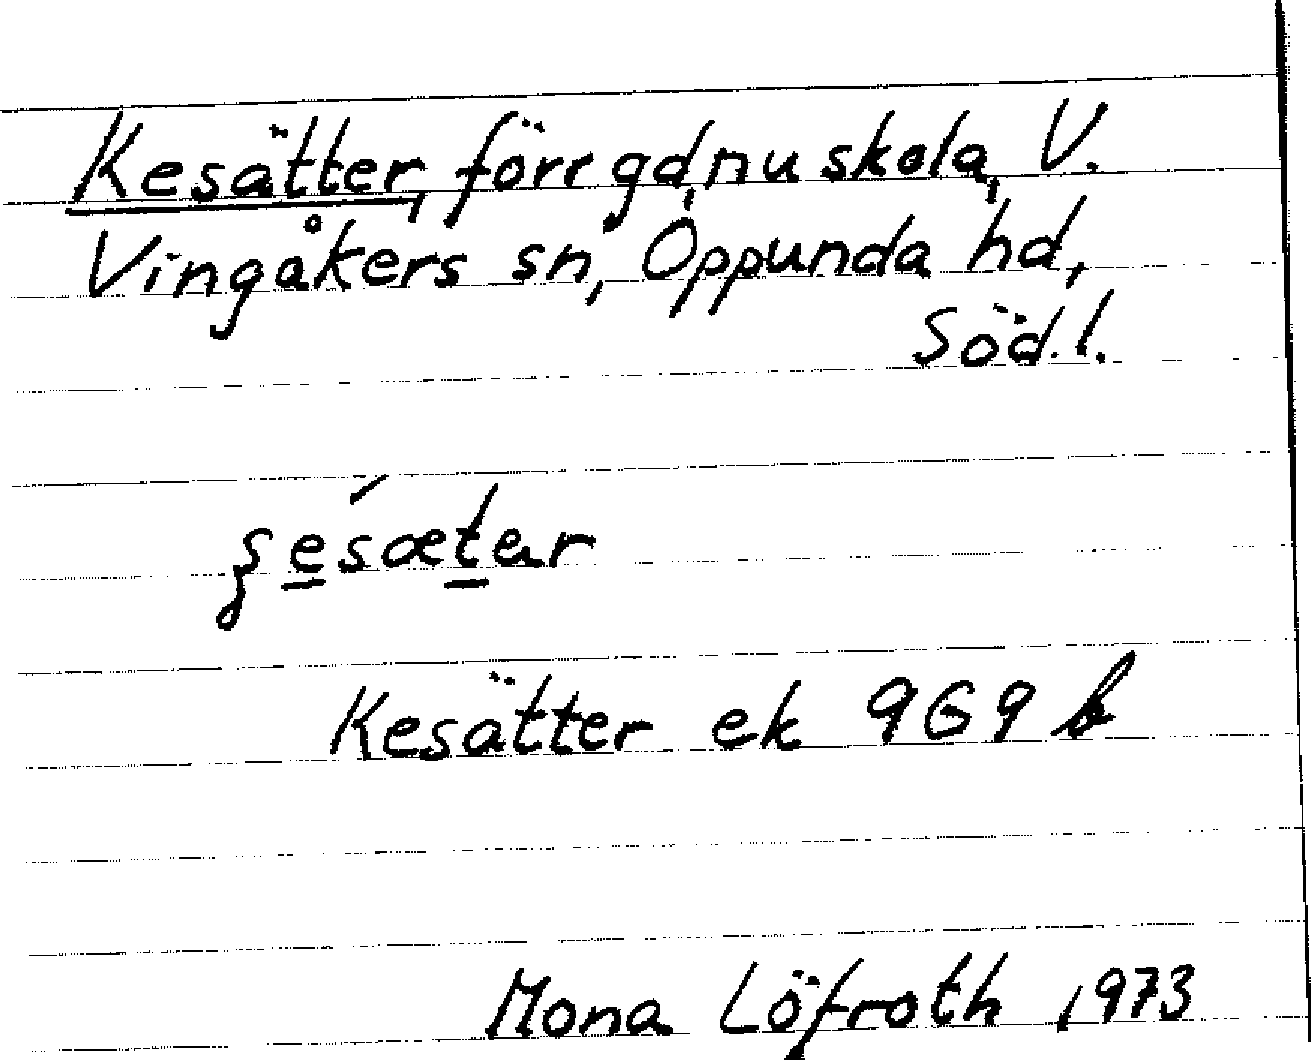 Kesätter, förr gd, nu skola, V.
Vingåkers sn, Oppunda hd,
Söd.l.
Kesätter ek 9G9 b
Mona Löfroth 1973